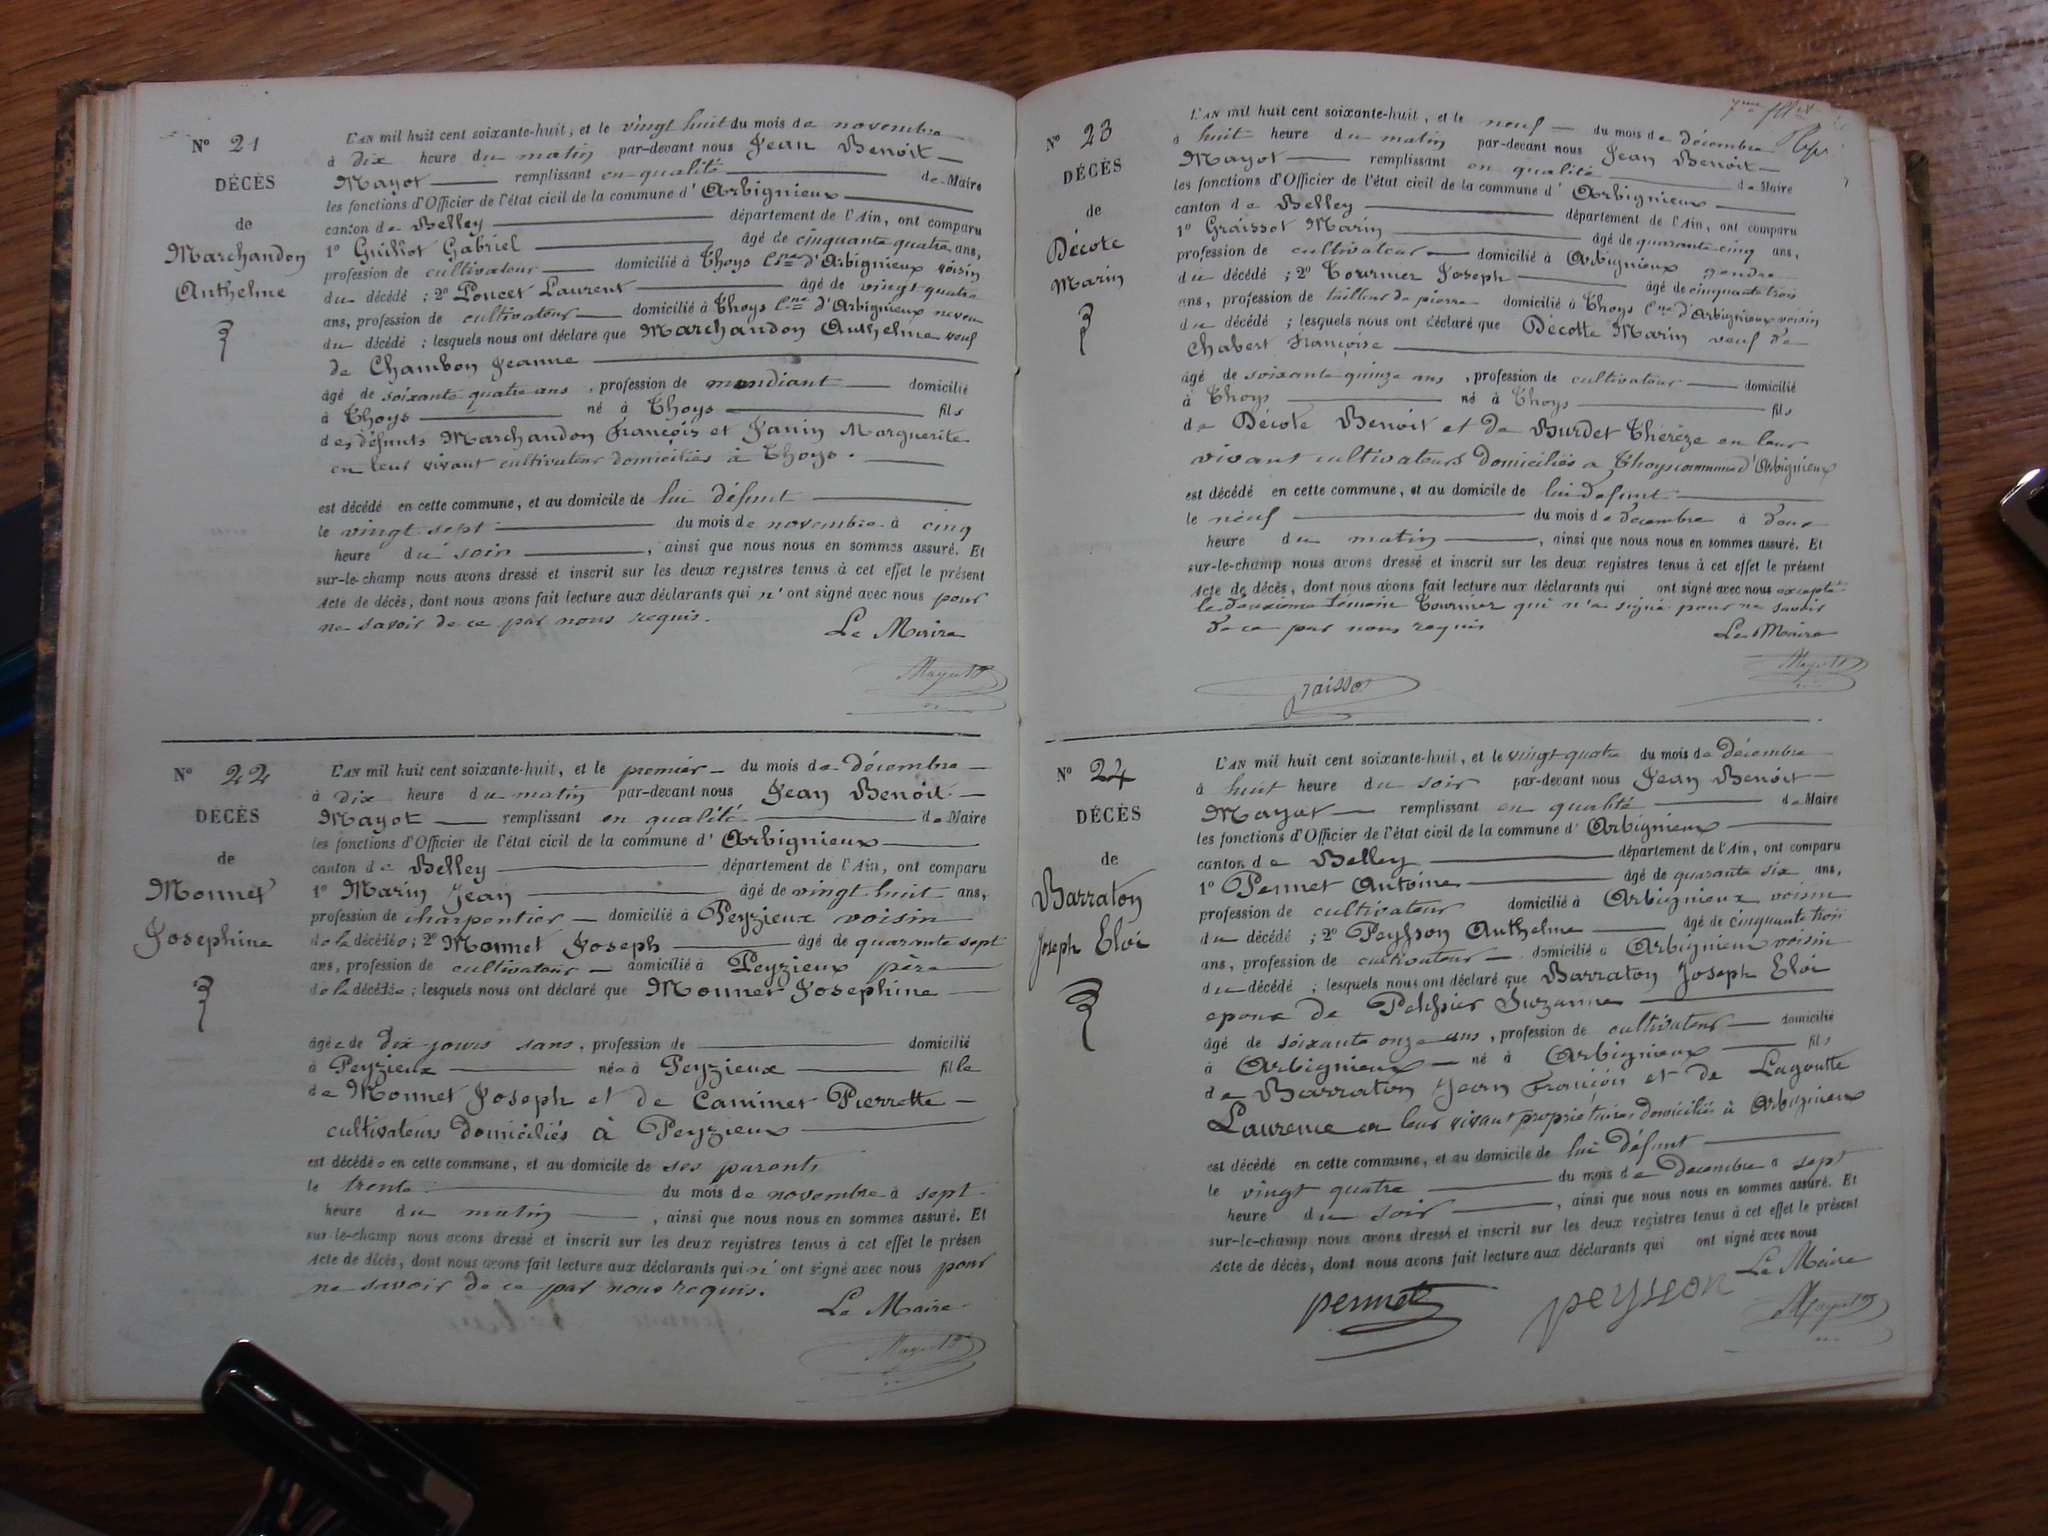 N° 21
DÉCÈS
de
Marchandon
Anthelme
L'AN mil huit cent soixante-huit, et le vingt huit du mois de novembre
à dix heure du matin par-devant nous Jean Benoit
Mayot remplissant en qualité de Maire
les fonctions d'Officier de l'état civil de la commune d'Arbignieux
canton de Belley département de l'Ain, ont comparu
1° Guillot Gabriel âgé de cinquante quatre ans,
profession de cultivateur domicilié à Thoys Cne d'Arbignieux voisin
du décédé ; 2° Poncet Laurent âgé de vingt quatre
ans, profession de cultivateur domicilié à Thoys Cne d'Arbignieux neveu
du décédé ; lesquels nous ont déclaré que Marchandon Anthelme veuf
de Chambon Jeanne
âgé de soixante quatre ans, profession de mendiant domicilié
à Thoys né à Thoys fils
des défunts Marchandon François et Janin Marguerite
en leur vivant cultivateurs domiciliés à Thoys.
est décédé en cette commune, et au domicile de lui défunt
le vingt sept du mois de novembre à cinq
heure du soir, ainsi que nous nous en sommes assuré. Et
sur-le-champ nous avons dressé et inscrit sur les deux registres tenus à cet effet le présent
Acte de décès, dont nous avons fait lecture aux déclarants qui n'ont signé avec nous pour
ne savoir de ce par nous requis.
Le Maire
Mayot
N° 22
DÉCÈS
de
Monnet
Josephine
L'AN mil huit cent soixante-huit, et le premier du mois de décembre
à dix heure du matin par-devant nous Jean Benoit
Mayot remplissant en qualité de Maire
les fonctions d'Officier de l'état civil de la commune d'Arbignieux
canton de Belley département de l'Ain, ont comparu
1° Marin Jean âgé de vingt huit ans,
profession de charpentier domicilié à Peyzieux voisin
de la décédée ; 2° Monnet Joseph âgé de quarante sept
ans, profession de cultivateur domicilié à Peyzieux père
de la décédée ; lesquels nous ont déclaré que Monnet Josephine
âgée de dix jours sans, profession de domicilié
à Peyzieux née à Peyzieux fille
de Monnet Joseph et de Caminet Pierrette
cultivateurs domiciliés à Peyzieux
est décédée en cette commune, et au domicile de ses parents
le trente du mois de novembre à sept
heure du matin, ainsi que nous nous en sommes assuré. Et
sur-le-champ nous avons dressé et inscrit sur les deux registres tenus à cet effet le présen
Acte de décès, dont nous avons fait lecture aux déclarants qui n'ont signé avec nous pour
ne savoir de ce par nous requis.
Le Maire
Mayot
N° 23
DÉCÈS
de
Décote
Marin
L'AN mil huit cent soixante-huit, et le neuf du mois de décembre
à huit heure du matin par-devant nous Jean Benoit
Mayot remplissant en qualité de Maire
les fonctions d'Officier de l'état civil de la commune d'Arbignieux
canton de Belley département de l'Ain, ont comparu
1° Graissot Marin âgé de quarante cinq ans,
profession de cultivateur domicilié à Arbignieux gendre
du décédé ; 2° Tournier Joseph âgé de cinquante trois
ans, profession de tailleur de pierre domicilié à Thoys Cne d'Arbignieux voisin
du décédé ; lesquels nous ont déclaré que Décotte Marin veuf de
Chabert Françoise
âgé de soixante quinze ans, profession de cultivateur domicilié
à Thoys né à Thoys fils
de Décote Benoit et de Burdet Thérèze en leur
vivant cultivateurs domiciliés a Thoys commune d'Arbignieux
est décédé en cette commune, et au domicile de lui défunt
le neuf du mois de decembre à deux
heure du matin, ainsi que nous nous en sommes assuré. Et
sur-le-champ nous avons dressé et inscrit sur les deux registres tenus à cet effet le présent
Acte de décès, dont nous avons fait lecture aux déclarants qui ont signé avec nous excepté
le deuxieme témoin Tournier qui n'a signé pour ne savoir
de ce par nous requis
Le Maire
Mayot
graissot
N° 24
DÉCÈS
de
Barraton
Joseph Eloi
L'AN mil huit cent soixante-huit, et le vingt quatre du mois de décembre
à huit heure du soir par-devant nous Jean Benoit
Mayot remplissant en qualité de Maire
les fonctions d'Officier de l'état civil de la commune d'Arbignieux
canton de Belley département de l'Ain, ont comparu
1° Pennet Antoine âgé de quarante six ans,
profession de cultivateur domicilié à Arbignieux voisin
du décédé ; 2° Peysson Anthelme âgé de cinquante trois
ans, profession de cultivateur domicilié à Arbignieux voisin
du décédé ; lesquels nous ont déclaré que Barraton Joseph Eloi
epoux de Pelissier Suzanne
âgé de soixante onze ans, profession de cultivateur domicilié
à Arbignieux né à Arbignieux fils
de Barraton Jean François et de Lagoutte
Laurence en leur vivant propriétaires domiciliés à Arbignieux
est décédé en cette commune, et au domicile de lui défunt
le vingt quatre du mois de decembre a sept
heure du soir, ainsi que nous nous en sommes assuré. Et
sur-le-champ nous avons dressé et inscrit sur les deux registres tenus à cet effet le présent
Acte de décès, dont nous avons fait lecture aux déclarants qui ont signé avec nous
Le Maire
pennet peysson Mayot